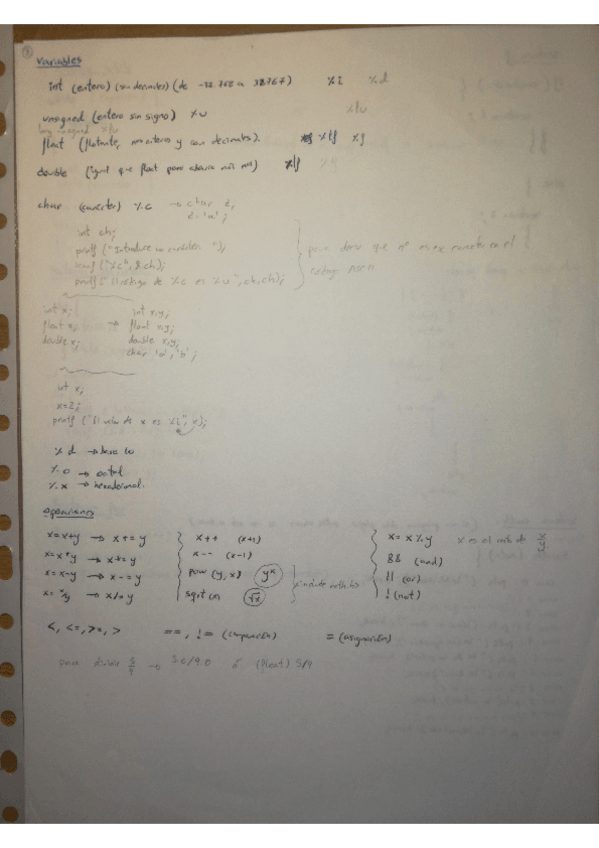 ①
Variables
int (entero) (sin decimales) (de -32.768 a 32.767) %i %d
unsigned (entero sin signo) %u %lu
long unsigned %lu
float (flotante, no enteros y con decimales). %f
double (igual que float para abarca más) %lf
char (carácter) %c → char z;
z='a';
int ch;
printf ("Introduce un carácter: ");
scanf ("%c", &ch);
printf ("El código de %c es %u", ch, ch);
para decir que nº es ese carácter en el
código ASCII
int x; int x,y;
float x; → float x,y;
double x; double x,y;
char 'a','b';
int x;
x=2;
printf ("El valor de x es %i", x);
%d → base 10
%o → octal
%x → hexadecimal.
Operaciones
x=x+y → x+=y x++ (x+1) x=x%y x es el resto de x/y
x=x*y → x*=y x-- (x-1) && (and)
x=x-y → x-=y pow (y,x) y^x || (or)
x=x/y → x/=y sqrt(x) √x include math.h ! (not)
<, <=, >=, > ==, != (comparación) = (asignación)
para dividir 5/9 → 5.0/9.0 ó (float) 5/9